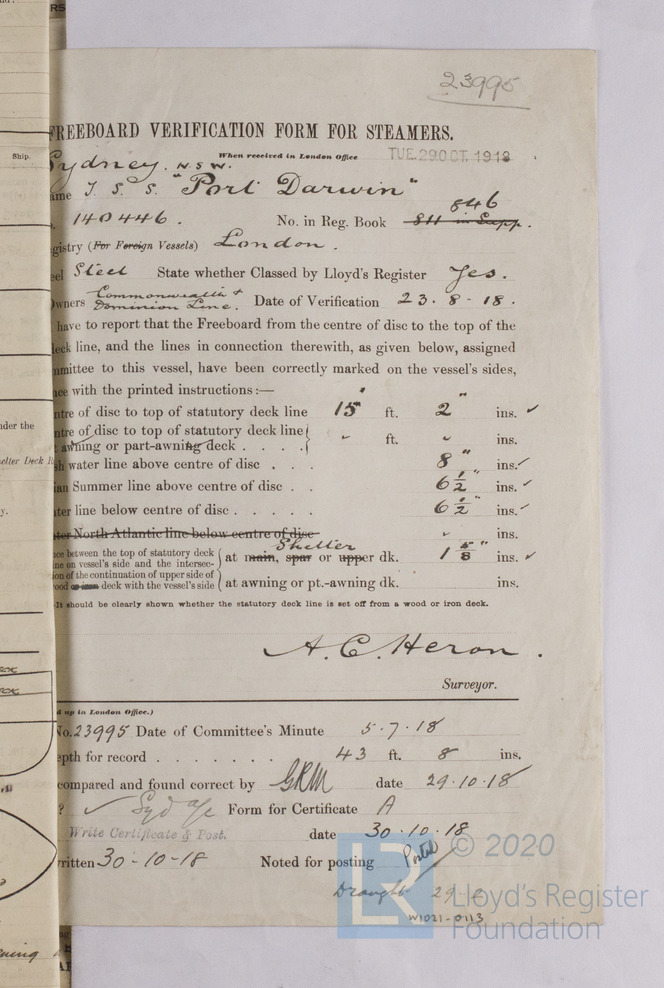 23995
FREEBOARD VERIFICATION FORM FOR STEAMERS.
Ship.
When received in London Office TUE. 29 OCT. 1918
Sydney. N.S.W.
ame T. S. S. "Port Darwin"
846
140446. No. in Reg. Book 811 in Supp.
gistry (For Foreign Vessels) London.
el Steel State whether Classed by Lloyd's Register Yes.
wners Commonwealth & Dominion Line. Date of Verification 23.8-18.
have to report that the Freeboard from the centre of disc to the top of the
deck line, and the lines in connection therewith, as given below, assigned
mmittee to this vessel, have been correctly marked on the vessel's sides,
nce with the printed instructions:—
ntre of disc to top of statutory deck line 15' ft. 2" ins.
nder the
ntre of disc to top of statutory deck line
awning or part-awning deck . . . . ft. ins.
elter Deck
sh water line above centre of disc . . . 8" ins.
ian Summer line above centre of disc . . 6 1/2" ins.
y.
ter line below centre of disc . . . . . 6 1/2" ins.
ter North Atlantic line below centre of disc ins.
Shelter
nce between the top of statutory deck
ne on vessel's side and the intersec-
at main, spar or upper dk. 1 5/8" ins.
ion of the continuation of upper side of
ood or iron deck with the vessel's side
at awning or pt.-awning dk. ins.
It should be clearly shown whether the statutory deck line is set off from a wood or iron deck.
A. C. Heron.
Surveyor.
d up in London Office.)
No. 23995 Date of Committee's Minute 5.7.18
epth for record . . . . . . . 43 ft. 8 ins.
compared and found correct by GRM date 29.10.18
? Syd Form for Certificate A
Write Certificate & Post. date 30.10.18
ritten 30-10-18 Noted for posting Posted
Draught 29
W1021-0113
© 2020
LR
Lloyd's Register
Foundation